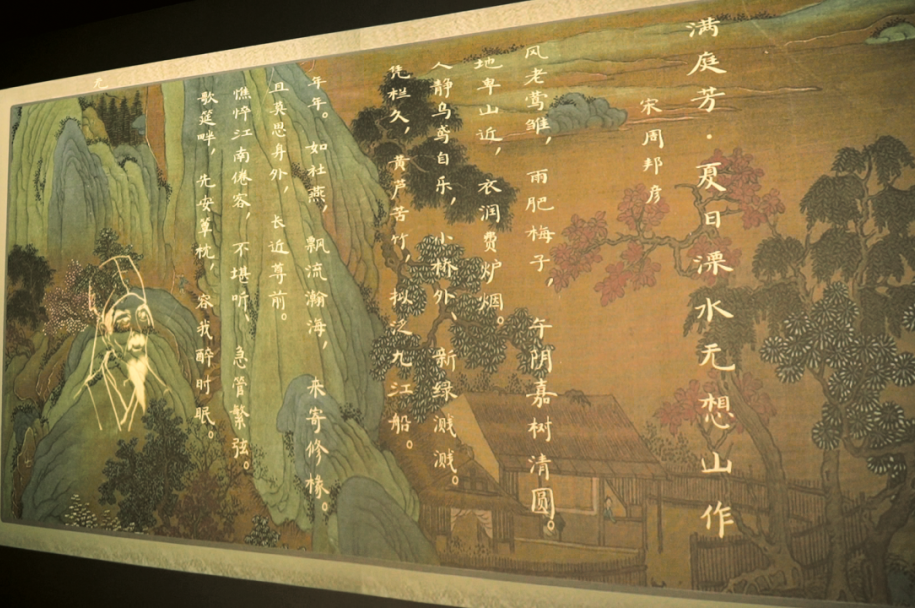 满庭芳·夏日溧水无想山作
宋周邦彦
风老莺雏，雨肥梅子，午阴嘉树清圆。
地卑山近，衣润费炉烟。
人静乌鸢自乐，小桥外、新绿溅溅。
凭栏久，黄芦苦竹，拟泛九江船。
年年。如社燕，飘流瀚海，来寄修椽。
且莫思身外，长近尊前。
憔悴江南倦客，不堪听、急管繁弦。
歌筵畔，先安簟枕，容我醉时眠。